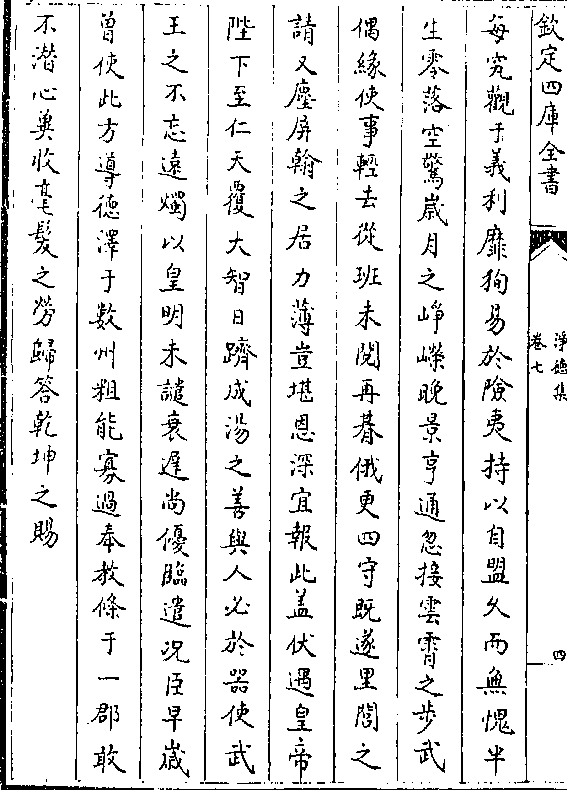 欽定四庫全書
淨德集
卷七
四
每究觀于義利靡狥易於險夷持以自盟久而無愧半
生零落空驚嵗月之崢嶸晚景亨通忽接雲霄之步武
偶緣使事輕去從班未閲再朞俄更四守既遂里閭之
請又塵屏翰之居力薄豈堪恩深宜報此盖伏遇皇帝
陛下至仁天覆大智日躋成湯之善與人必於器使武
王之不忘遠燭以皇明未譴衰遲尚優臨遣况臣早嵗
曾使此方導德澤于數州粗能寡過奉教條于一郡敢
不潛心兾收毫髮之勞歸答乾坤之賜